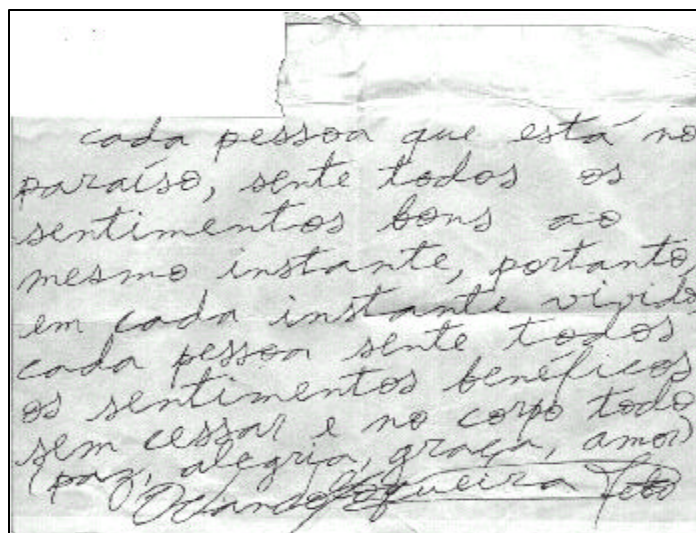 cada pessoa que está no
paraíso, sente todos os
sentimentos bons ao
mesmo instante, portanto,
em cada instante vivido
cada pessoa sente todos
os sentimentos benéficos
sem cessar e no corpo todo
(paz, alegria, graça, amor)